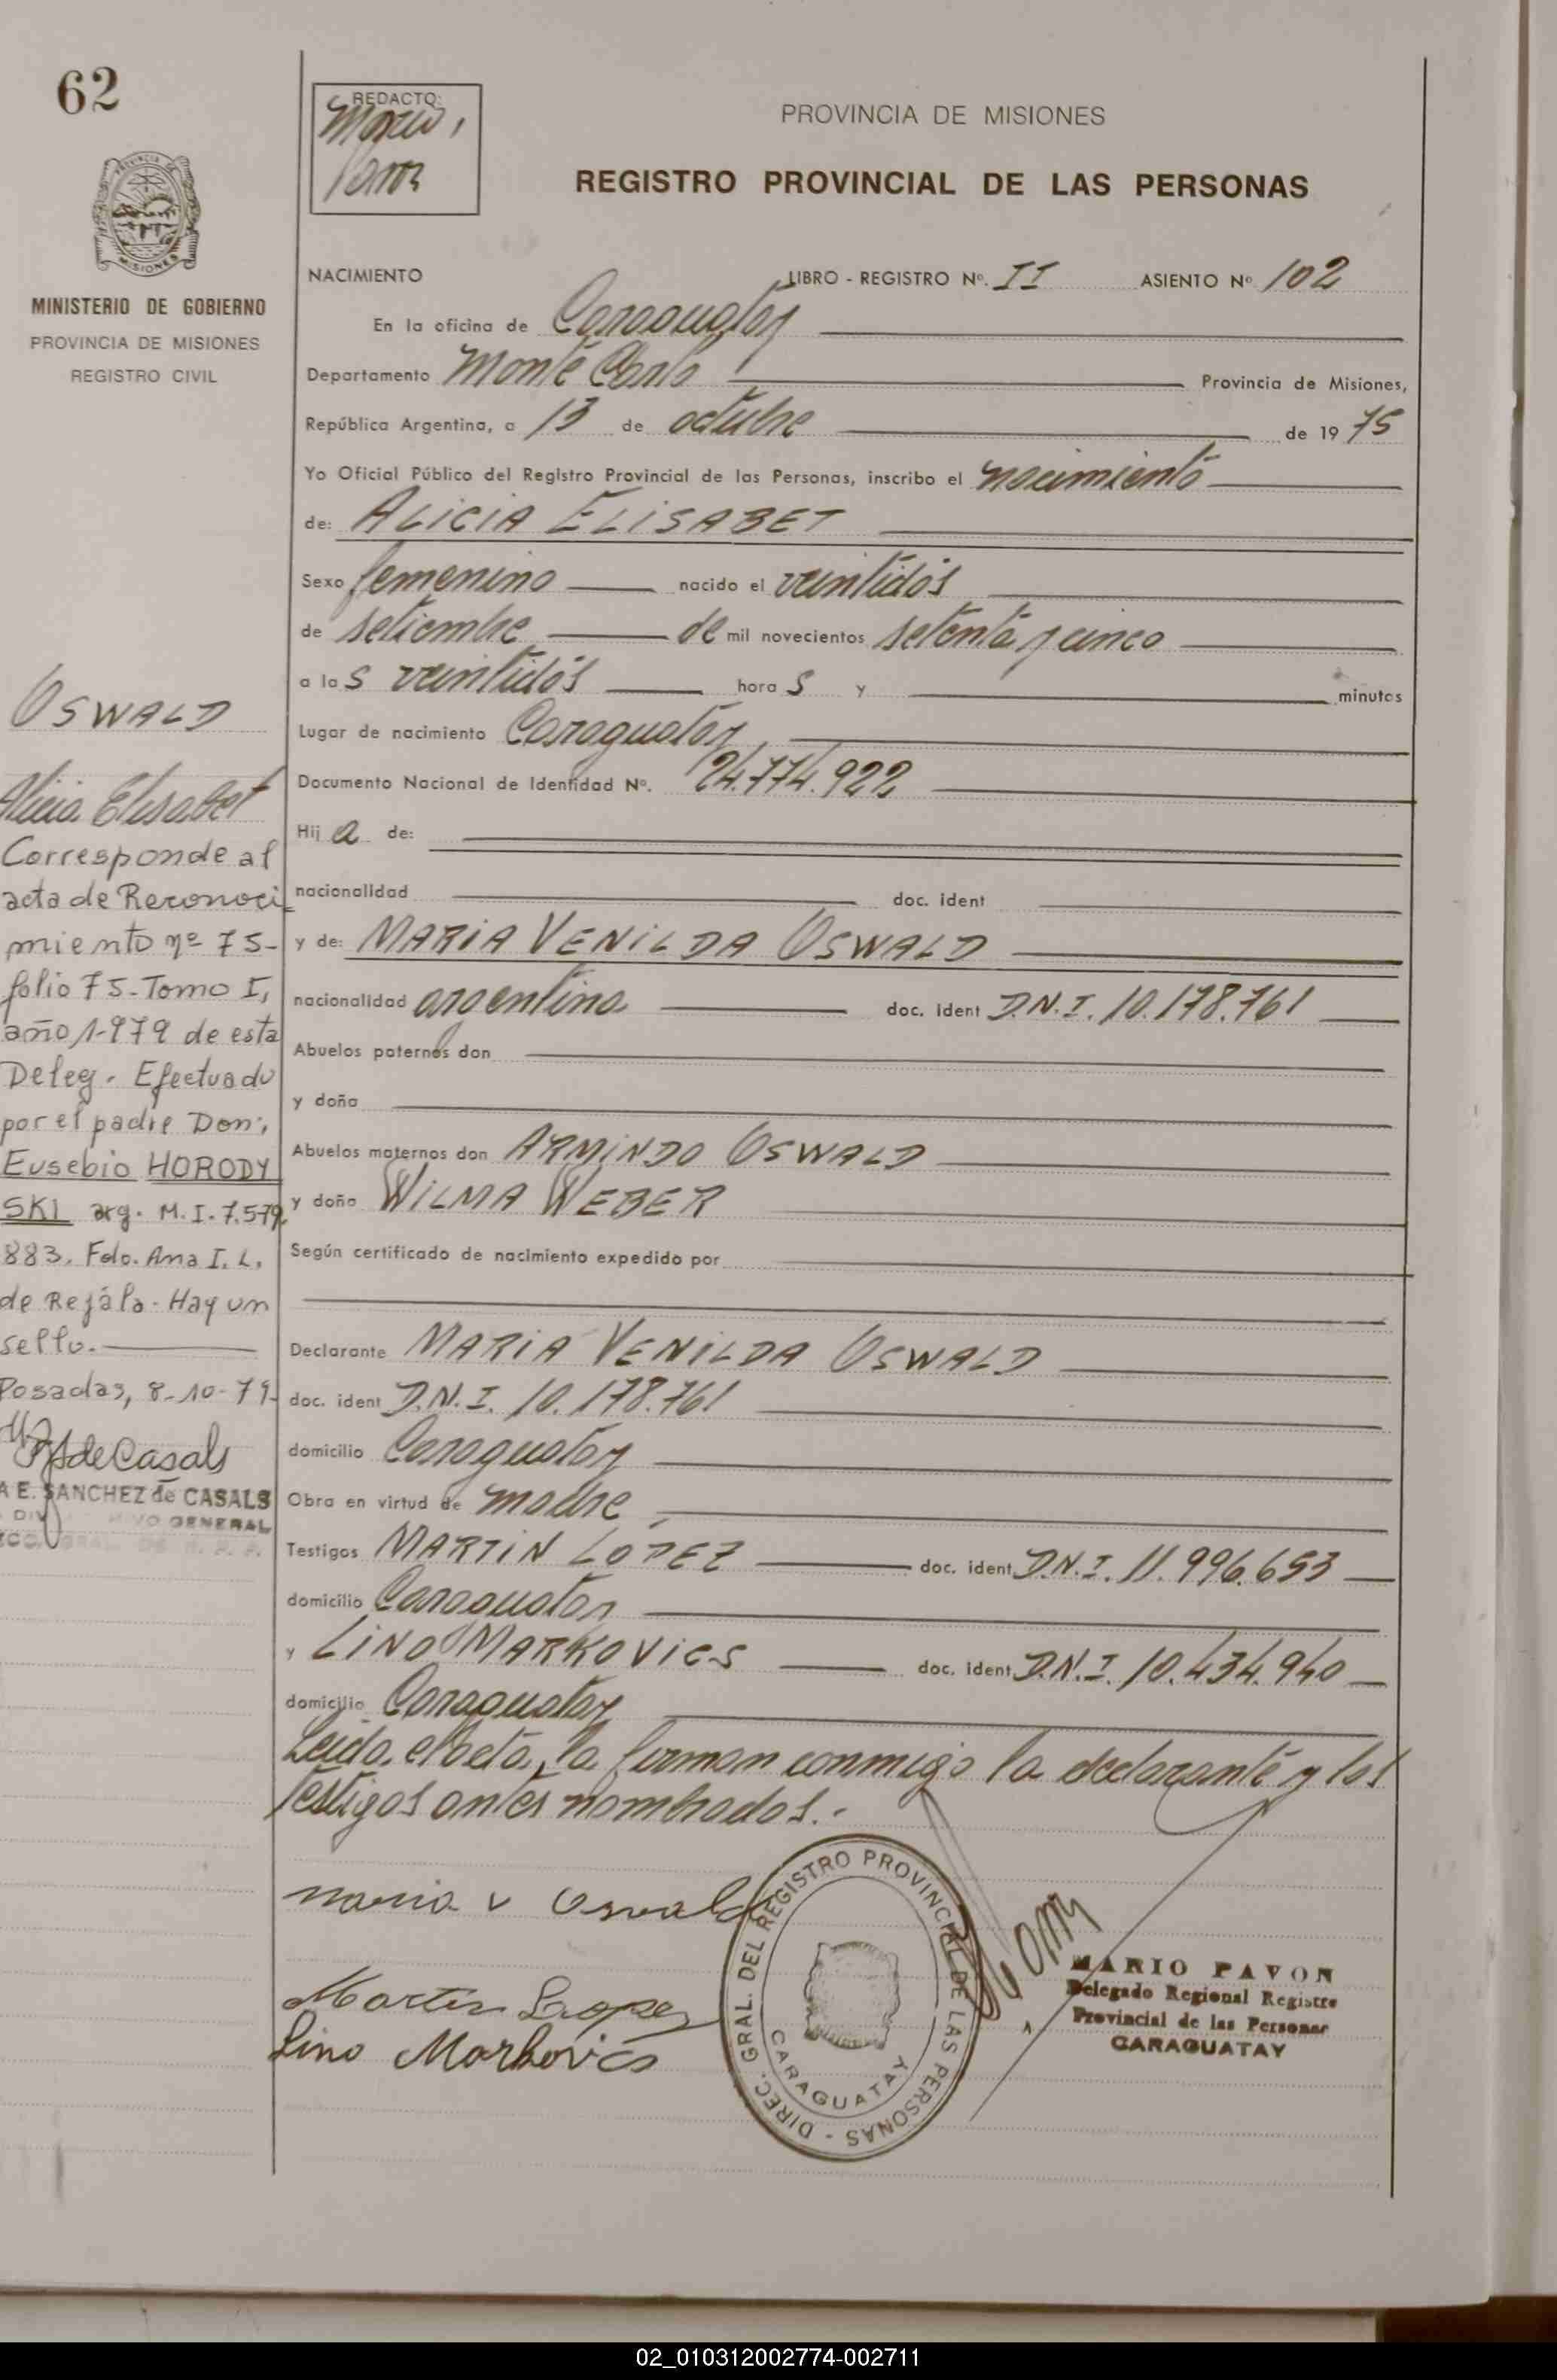 62
REDACTO:
PROVINCIA DE MISIONES
REGISTRO PROVINCIAL DE LAS PERSONAS
MISIONES
MINISTERIO DE GOBIERNO
PROVINCIA DE MISIONES
REGISTRO CIVIL
NACIMIENTO LIBRO - REGISTRO Nº. II ASIENTO Nº 102
En la oficina de Caraguatay
Departamento Monte Carlo Provincia de Misiones,
República Argentina, a 13 de octubre de 1975
Yo Oficial Público del Registro Provincial de las Personas, inscribo el nacimiento
de: ALICIA ELISABET
Sexo femenino nacido el veintidós
de setiembre de mil novecientos setenta y cinco
a las veintidós horas y minutos
Lugar de nacimiento Caraguatay
Documento Nacional de Identidad Nº. 24.774.922
Hija de:
nacionalidad doc. ident
y de: MARIA VENILDA OSWALD
nacionalidad argentina doc. ident D.N.I. 10.178.761
Abuelos paternos don
y doña
Abuelos maternos don ARMINDO OSWALD
y doña WILMA WEBER
Según certificado de nacimiento expedido por
Declarante MARIA VENILDA OSWALD
doc. ident D.N.I. 10.178.761
domicilio Caraguatay
Obra en virtud de madre
Testigos MARTIN LOPEZ doc. ident D.N.I. 11.996.653
domicilio Caraguatay
y LINO MARKOVICS doc. ident D.N.I. 10.434.940
domicilio Caraguatay
Leida el acta, la firman conmigo la declarante y los
testigos antes nombrados.-
OSWALD
Alicia Elisabet
Corresponde al
acta de Reconoci
miento nº 75-
folio 75-Tomo I,
año 1.979 de esta
Deleg. Efectuado
por el padre Don:
Eusebio HORODY
SKI arg. M.I. 7.579.
883. Fdo. Ana I. L.
de Rejála. Hay un
sello.
Posadas, 8-10-79.
de Casals
A E. SANCHEZ de CASALS
GENERAL
maria v Oswald
Martin Lopez
Lino Markovics
DIREC. GRAL. DEL REGISTRO PROVINCIAL DE LAS PERSONAS -
CARAGUATAY
MARIO PAVON
Delegado Regional Registro
Provincial de las Personas
CARAGUATAY
02_010312002774-002711